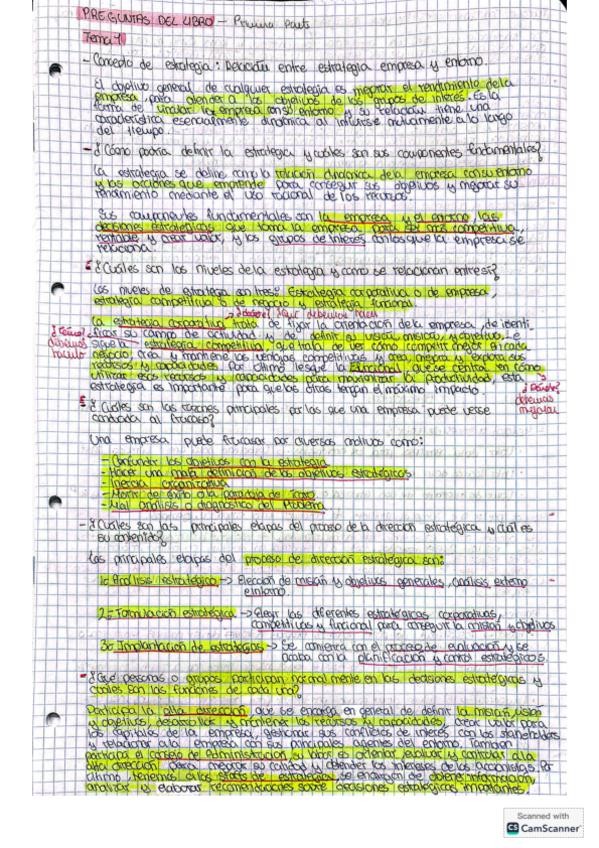 PREGUNTAS DEL LIBRO - Primera parte
Tema 1
- Concepto de estrategia: Relación entre estrategia empresa y entorno.
El objetivo general de cualquier estrategia es mejorar el rendimiento de la
empresa, para atender a los objetivos de los grupos de interés. Es la
forma de vincular la empresa con su entorno y su relación tiene una
característica esencialmente dinámica al influirse mutuamente a lo largo
del tiempo.
- ¿Cómo podría definir la estrategia y cuáles son sus componentes fundamentales?
La estrategia se define como la relación dinámica de la empresa con su entorno
y las acciones que emprende para conseguir sus objetivos y mejorar su
rendimiento mediante el uso racional de los recursos.
Sus componentes fundamentales son la empresa y el entorno, las
decisiones estratégicas que toma la empresa, para ser más competitiva,
rentable y crear valor, y los grupos de interés con los que la empresa se
relaciona.
¿Cuáles son los niveles de la estrategia y como se relacionan entre sí?
Los niveles de estrategia son tres: Estrategia corporativa o de empresa,
estrategia competitiva o de negocio y estrategia funcional.
¿dónde? ¿qué debemos hacer?
La estrategia corporativa trata de fijar la orientación de la empresa, de identi-
¿Cómo? debemos hacerlo
ficar su campo de actividad y de definir su visión, misión y objetivo. Le
sigue la estrategia competitiva que trata de ver cómo competir mejor en cada
negocio, crea y mantiene las ventajas competitivas y crea, mejora y explota sus
recursos y capacidades. Por último le sigue la funcional, que se centra en cómo
utilizar esos recursos y capacidades para maximizar la productividad, esta
estrategia es importante para que las otras tengan el máximo impacto.
¿Dónde? debemos mejorar
¿Cuáles son las razones principales por las que una empresa puede verse
conducida al fracaso?
Una empresa puede fracasar por diversos motivos como:
- Confundir los objetivos con la estrategia
- Hacer una mala definición de los objetivos estratégicos
- Inercia organizativa
- Morir de éxito o la paradoja de Ícaro
- Mal análisis o diagnóstico del problema
- ¿Cuáles son las principales etapas del proceso de la dirección estratégica y cuál es
su contenido?
Las principales etapas del proceso de dirección estratégica son:
1º Análisis estratégico → Elección de misión y objetivos generales, análisis externo
e interno.
2º Formulación estratégica → Elegir las diferentes estratégicas corporativas,
competitivas y funcional para conseguir la misión y objetivos
3º Implantación de estrategias → Se comienza con el proceso de evaluación y se
acaba con la planificación y control estratégicos.
- ¿Qué personas o grupos participan normalmente en las decisiones estratégicas y
cuáles son las funciones de cada uno?
Participa la alta dirección, que se encarga en general de definir la misión, visión
y objetivos, desarrollar y mantener los recursos y capacidades, crear valor para
los capitales de la empresa, gestionar sus conflictos de interés con los stakeholders
y relacionar a la empresa con sus principales agentes del entorno. También
participa el consejo de Administración, su labor es orientar, evaluar y controlar a la
alta dirección para mejorar su calidad y defender los intereses de los accionistas. Por
último, tenemos a los staffs de estrategia, se encargan de obtener información,
analizar y elaborar recomendaciones sobre decisiones estratégicas importantes.
Scanned with
CS CamScanner